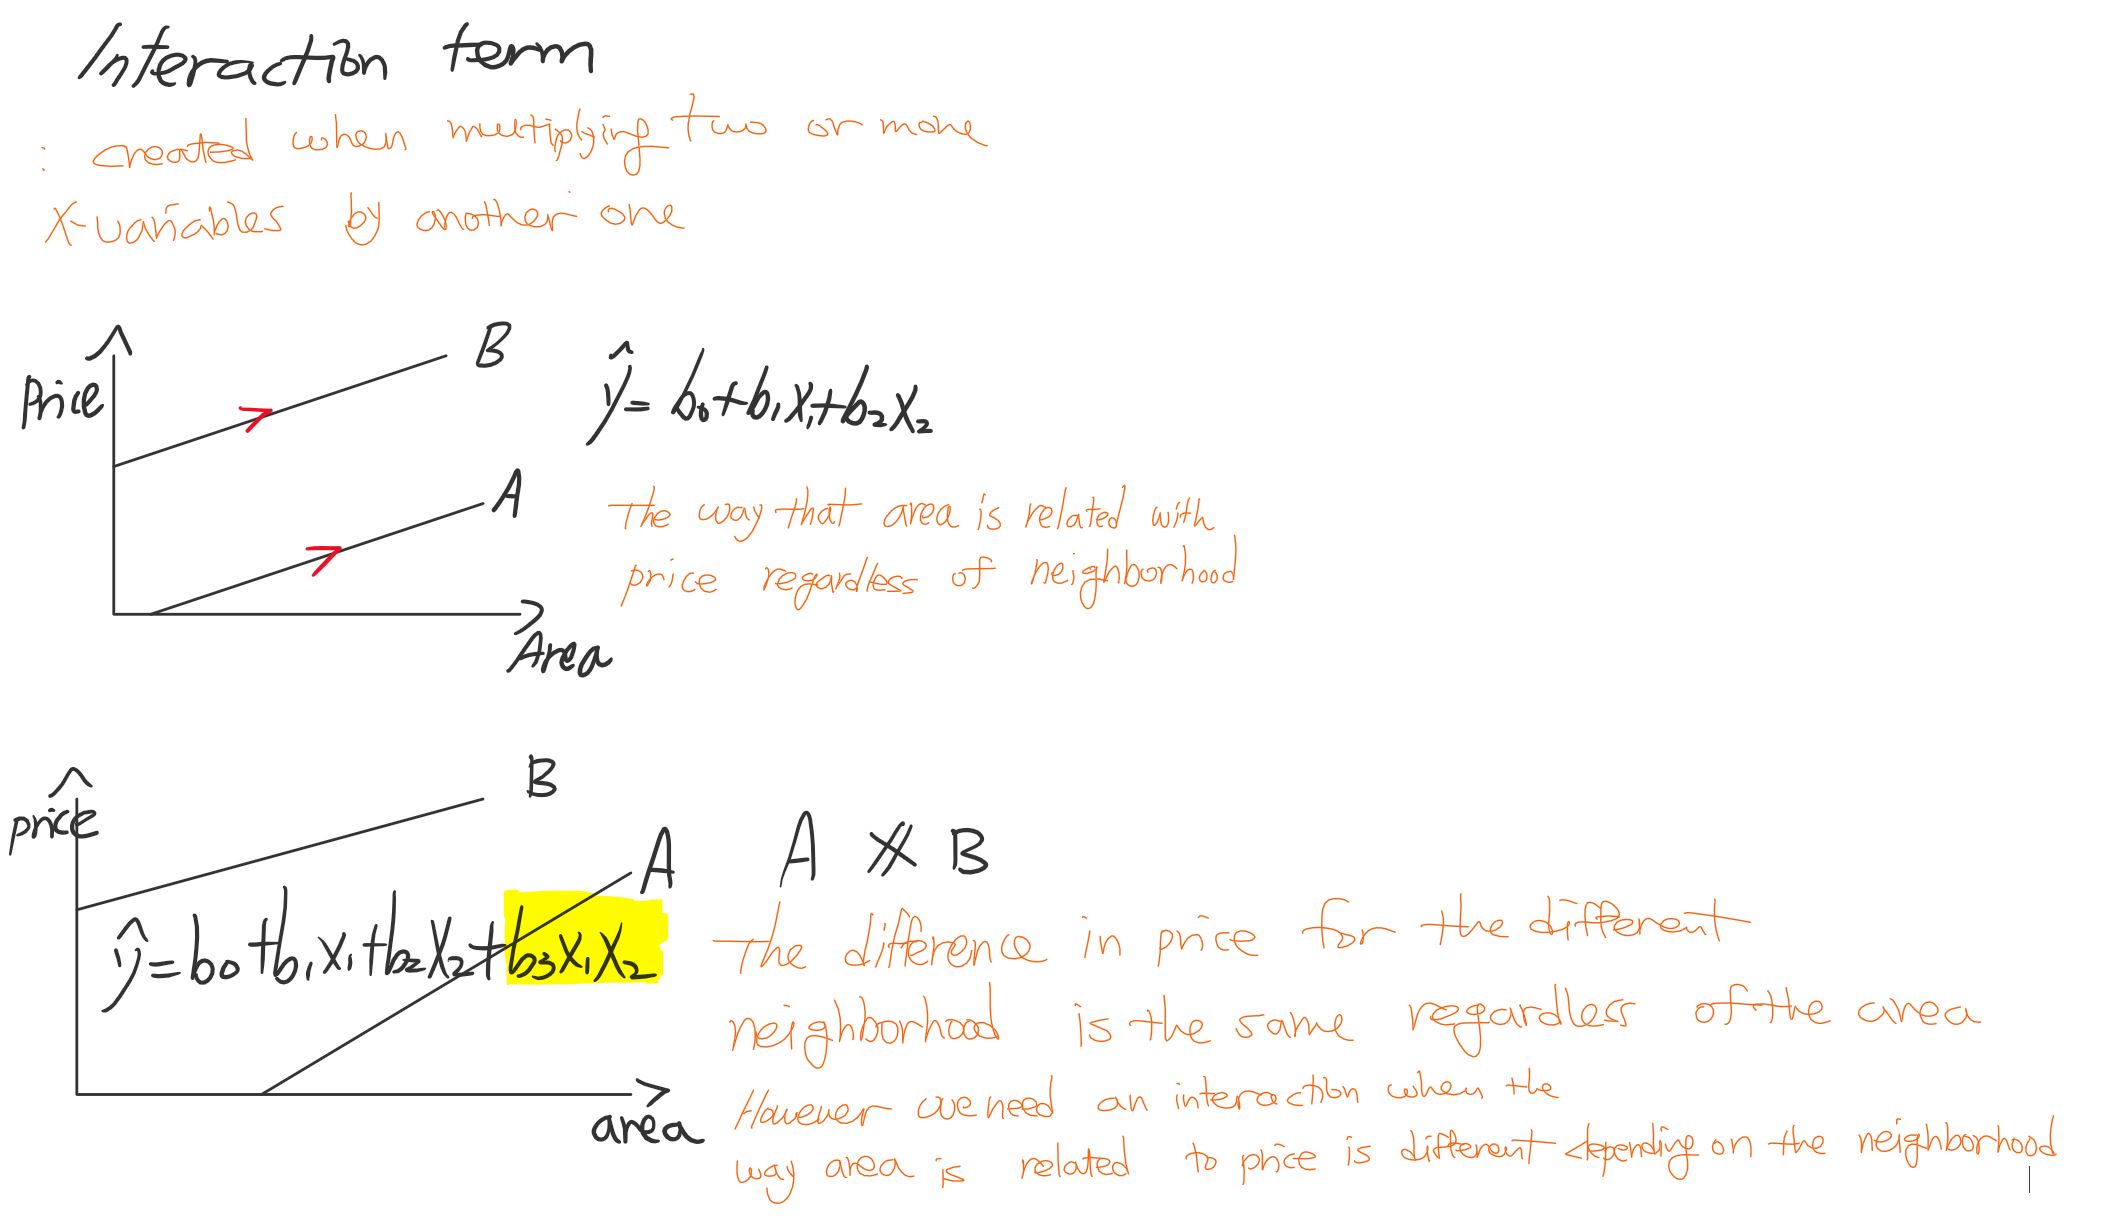 Interaction term
: created when multiplying two or more
X-variables by another one
Price
B
A
Area
ŷ = b₀+b₁x₁+b₂x₂
The way that area is related with
price regardless of neighborhood
price
B
A
ŷ = b₀+b₁x₁+b₂x₂+b₃x₁x₂
area
A ∦ B
The difference in price for the different
neighborhood is the same regardless of the area
However we need an interaction when the
way area is related to price is different depending on the neighborhood